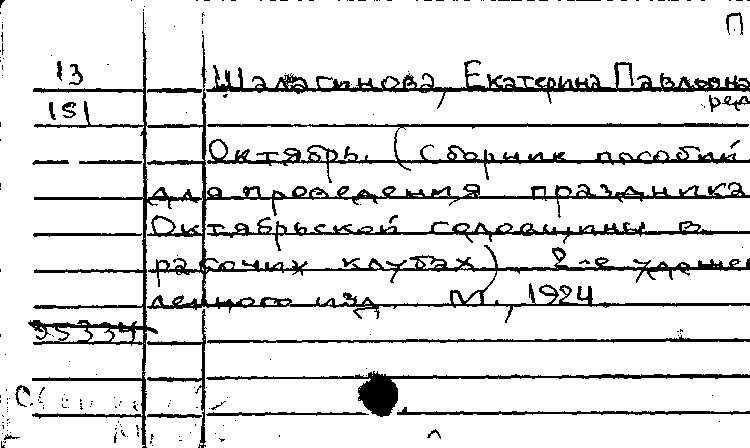 П
13
Шалагинова, Екатерина Павловна
181
ред
Октябрь. (Сборник пособий
для проведения праздника
Октябрьской годовщины в
рабочих клубах) 2-е удеше
вленного изд. М., 1924.
95334